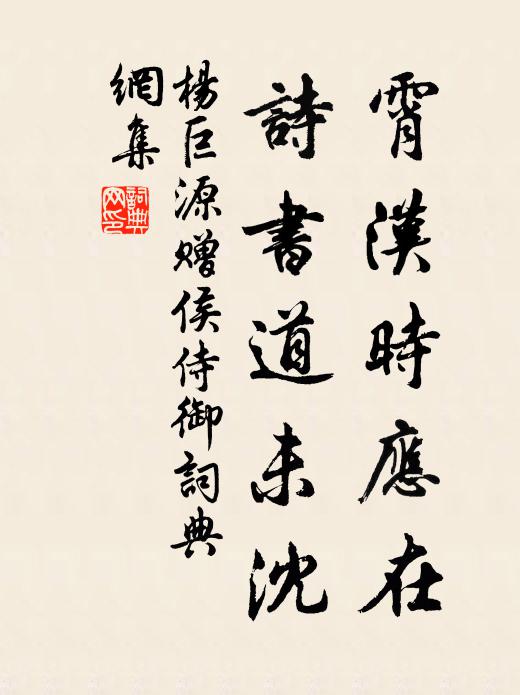 霄漢時應在
詩書道未沈
楊巨源贈侯侍御詞典
網集
詞典網印